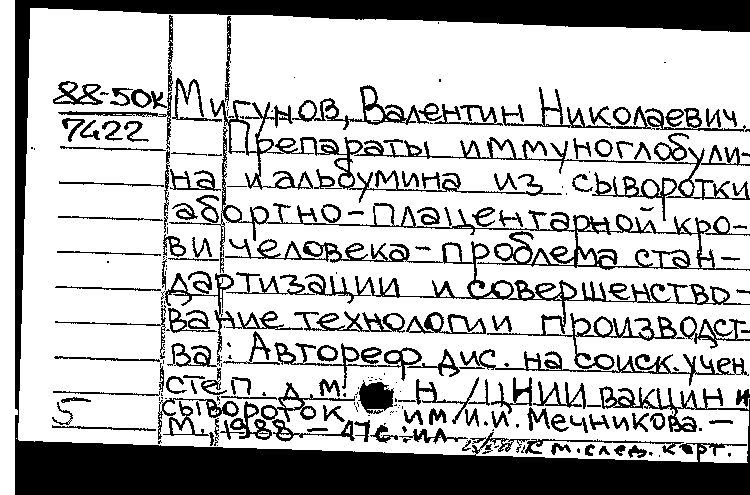 88-50к Мигунов, Валентин Николаевич.
7422 Препараты иммуноглобули-
на и альбумина из сыворотки
абортно-плацентарной кро-
ви человека - проблема стан-
дартизации и совершенство-
вание технологии производст-
ва: Автореф. дис. на соиск. учен
степ. д.м. н /ЦНИИ вакцин и
сывороток им. И.И. Мечникова. –
5 М., 1988. – 47 с.: ил.
См. след. карт.